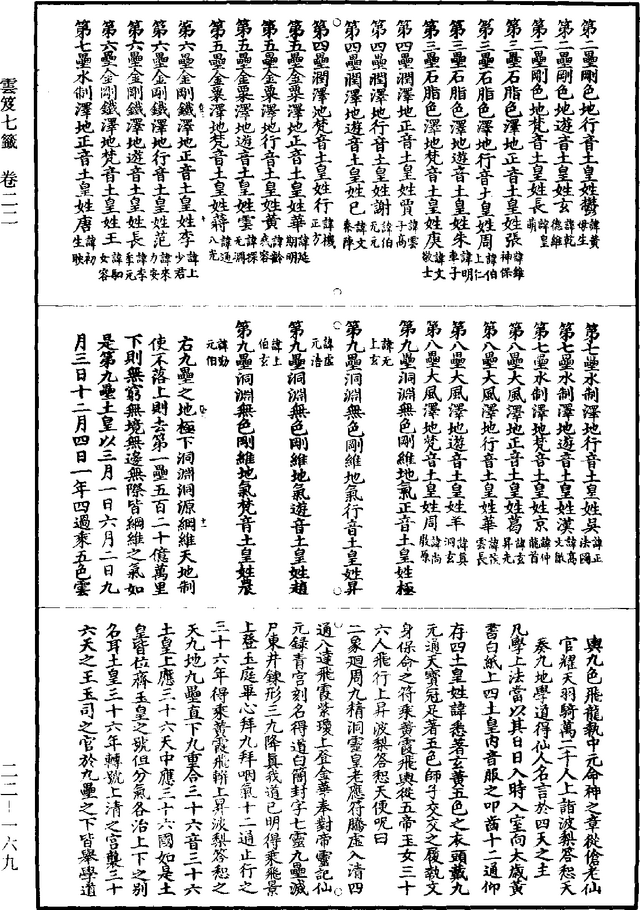 雲笈七籤 卷二二
第二壘剛色地行音土皇姓鬱諱黃母生
第二壘剛色地遊音土皇姓玄諱乾德維
第二壘剛色地梵音土皇姓長諱皇萌
第三壘石脂色澤地正音土皇姓張諱維神保
第三壘石脂色澤地行音土皇姓周諱伯上仁
第三壘石脂色澤地遊音土皇姓朱諱明車子
第三壘石脂色澤地梵音土皇姓庚諱文敬士
第四壘潤澤地正音土皇姓賈諱雲子高
第四壘潤澤地行音土皇姓謝諱伯无元
第四壘潤澤地遊音土皇姓已諱文秦陣
第四壘潤澤地梵音土皇姓行諱機正方
第五壘金粟澤地正音土皇姓華諱延期明
第五壘金粟澤地行音土皇姓黃諱齡我容
第五壘金粟澤地遊音土皇姓雲諱探无淵
第五壘金粟澤地梵音土皇姓蔣諱通八光
第六壘金剛鐵澤地正音土皇姓李諱上少君
第六壘金剛鐵澤地行音土皇姓范諱來力安
第六壘金剛鐵澤地遊音土皇姓長諱李季元
第六壘金剛鐵澤地梵音土皇姓王諱駟女容
第七壘水制澤地正音土皇姓唐諱初生映
第七壘水制澤地行音土皇姓吳諱正法圖
第七壘水制澤地遊音土皇姓漢諱高文徹
第七壘水制澤地梵音土皇姓京諱仲龍首
第八壘大風澤地正音土皇姓葛諱玄昇光
第八壘大風澤地行音土皇姓華諱茂雲長
第八壘大風澤地遊音土皇姓羊諱真洞玄
第八壘大風澤地梵音土皇姓周諱尚敬原
第九壘洞淵無色剛維地氣正音土皇姓極
諱无上玄
第九壘洞淵無色剛維地氣行音土皇姓昇
諱虛元浩
第九壘洞淵無色剛維地氣遊音土皇姓趙
諱上伯玄
第九壘洞淵無色剛維地氣梵音土皇姓農
諱勤元伯
右九壘之地極下洞淵洞源綱維天地制
使不落上則去第一壘五百二十億萬里
下則無窮無境無邊無際皆綱維之氣如
是第九壘土皇以三月一日六月二日九
月三日十二月四日一年四過乘五色雲
輿九色飛龍執中元命神之章從傖老仙
官耀天羽騎萬二千人上詣波梨答恕天
奏九地學道得仙人名言於四天之主
凡學上法當以其日日入時入室向太歲黃
書白紙上四土皇內音服之叩齒十二通仰
存四土皇姓諱悉著玄黃五色之衣頭戴九
元通天寶冠足著五色師子交交之履執文
身保命之符乘黃霞飛輿從五帝玉女三十
六人飛行上昇波梨答恕天便呪曰
二象迴周九精洞靈皇老應符騰虛入清四
通八達飛霞紫瓊上登金華奉對帝靈記仙
元錄青宮刻名得道白簡封字七靈九壘滅
尸東井鍊形三九降真我道已明得乘飛景
上登玉庭畢心拜九拜咽氣十二通止行之
三十六年得乘黃霞飛輧上昇波梨答恕之
天九地九壘直下九重合三十六音三十六
土皇上應三十六天中應三十六國如是土
皇皆位齊玉皇之號但分氣各治上下之別
名耳土皇三十六年轉號上清之宮襲三十
六天之王玉司之官於九壘之下皆舉學道
二二—一六九